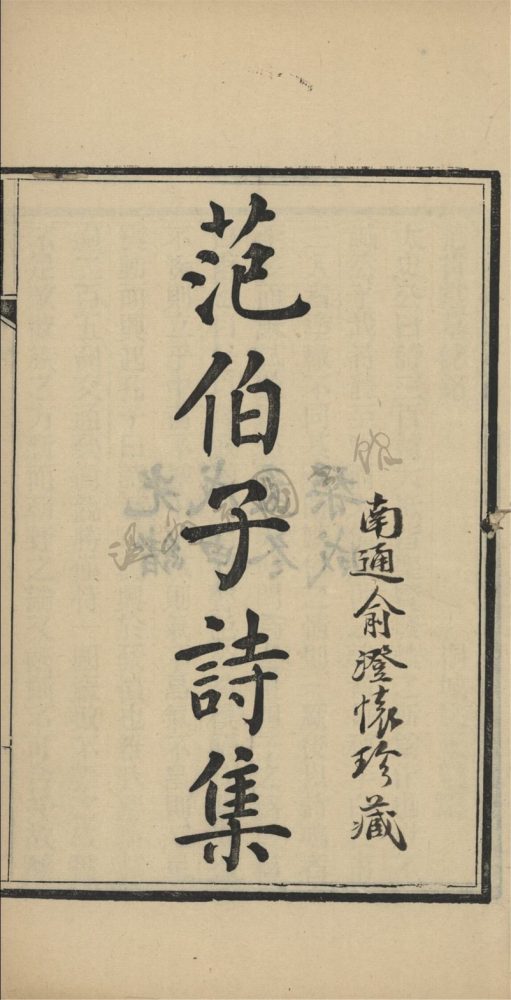 南通俞澄懷珍藏
范伯子詩集